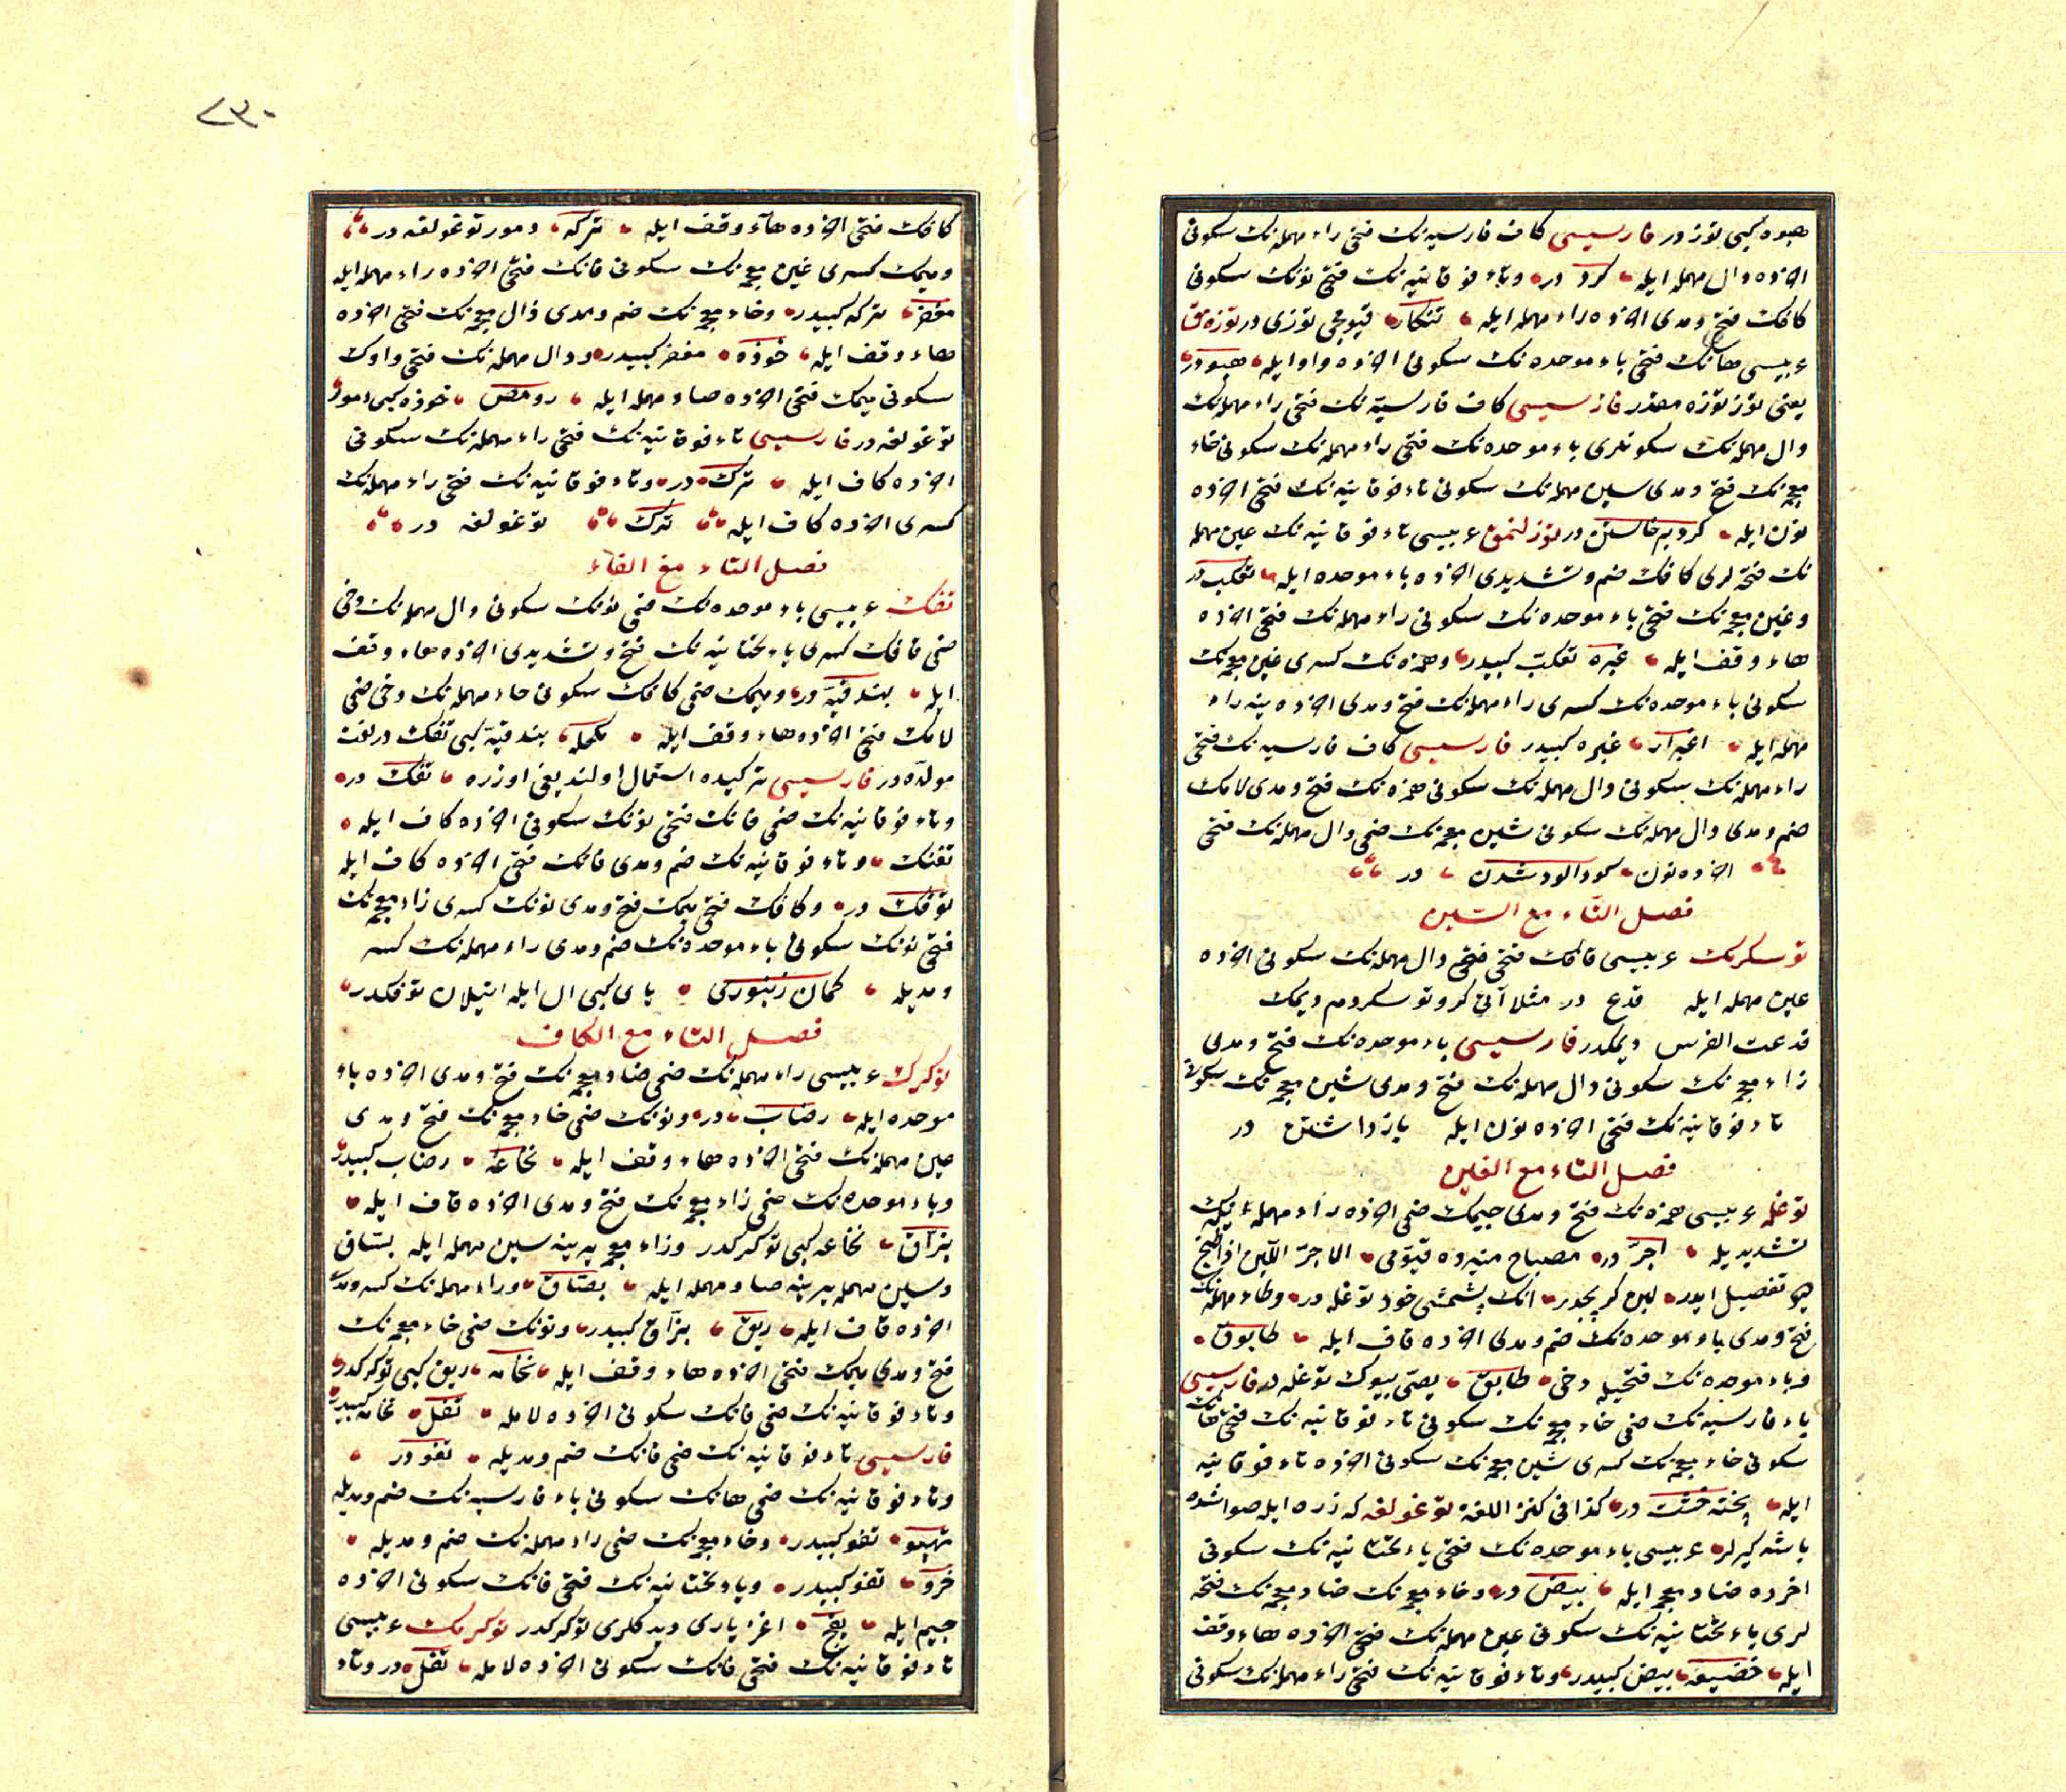 هبوه كبى توز در فارسيسى كاف فارسيه نك فتحى راء مهمله نك سكونى
اخرده دال مهمله ايله كرد در وتاء فوقانيه نك فتحى نونك سكونى
كافك فتح ومدى اخرده راء مهمله ايله تنكار قيومجى توزى در توزه مق
عربيسى هانك فتحى باء موحده نك سكونى اخرده واو ايله هبو در
يعنى توز توزه مقدر فارسيسى كاف فارسيه نك فتحى راء مهمله نك
دال مهمله نك سكونلرى باء موحده نك فتحى راء مهمله نك سكونى خاء
معجمه نك فتح ومدى سين مهمله نك سكونى تاء فوقانيه نك فتحى اخرده
نون ايله كرد برخاستن در توزلنمق عربيسى تاء فوقانيه نك عين مهمله
نك فتحه لرى كافك ضم وتشديدى اخرده باء موحده ايله تعكب در
وغين معجمه نك فتحى باء موحده نك سكونى راء مهمله نك فتحى اخرده
هاء وقف ايله غبره تعكب كبيدر وهمزه نك كسرى غين معجمه نك
سكونى باء موحده نك كسرى راء مهمله نك فتح ومدى اخرده ينه راء
مهمله ايله اغبرار غبره كبيدر فارسيسى كاف فارسيه نك فتحى
راء مهمله نك سكونى دال مهمله نك سكونى همزه نك فتح ومدى لامك
ضم ومدى دال مهمله نك سكونى شين معجمه نك ضمى دال مهمله نك فتحى
اخرده نون كرد الود شدن در
فصل التاء مع السين
توسكرمك عربيسى قافك فتحى دال مهمله نك سكونى اخرده
عين مهمله ايله قدع در مثلا آتى كرو توسكردم ديمك
قدعت الفرس ديمكدر فارسيسى باء موحده نك فتح ومدى
زاء معجمه نك سكونى دال مهمله نك فتح ومدى شين معجمه نك سكونى
تاء فوقانيه نك فتحى اخرده نون ايله بازداشتن در
فصل التاء مع الغين
توغله عربيسى همزه نك فتح ومدى جيمك ضمى اخرده راء مهمله نك
تشديديله اجرّ در مصباح منيرده قيومى الاجرّ اللبن اذا طبخ
ديو تفصيل ايدر لبن كرپجدر انك پشمشى خود توغله در وطاء مهمله نك
فتح ومدى باء موحده نك ضم ومدى اخرده قاف ايله طابوق
وباء موحده نك فتحيله دخى طابق يصى بيوك توغله در فارسيسى
باء فارسيه نك ضمى خاء معجمه نك سكونى تاء فوقانيه نك فتحى هانك
سكونى خاء معجمه نك كسرى شين معجمه نك سكونى اخرده تاء فوقانيه
ايله پخته خشت در كذا فى كنز اللغه توغولغه كه زره ايله صواشده
باشه كيرلر عربيسى باء موحده نك فتحى ياء تحتانيه نك سكونى
اخرده ضاد معجمه ايله بيض در وخاء معجمه نك ضاد معجمه نك فتحه
لرى ياء تحتانيه نك سكونى عين مهمله نك فتحى اخرده هاء وقف
ايله خضيعه بيض كبيدر وتاء فوقانيه نك فتحى راء مهمله نك سكونى
٢٣٠
كافك فتحى اخرده هاء وقف ايله تركه دمور توغولغه در
وميمك كسرى غين معجمه نك سكونى فانك فتحى اخرده راء مهمله ايله
مغفر تركه كبيدر وخاء معجمه نك ضم ومدى ذال معجمه نك فتحى اخرده
هاء وقف ايله خوذه مغفر كبيدر ودال مهمله نك فتحى واوك
سكونى ميمك فتحى اخرده صاد مهمله ايله دومص خوذه كبى دمور
توغولغه در فارسيسى تاء فوقانيه نك فتحى راء مهمله نك سكونى
اخرده كاف ايله ترك در وتاء فوقانيه نك فتحى راء مهمله نك
كسرى اخرده كاف ايله ترك توغولغه در
فصل التاء مع الفاء
تفك عربيسى باء موحده نك ضمى نونك سكونى دال مهمله نك دخى
ضمى قافك كسرى ياء تحتانيه نك فتح وتشديدى اخرده هاء وقف
ايله بندقيّه در وميمك ضمى كافك سكونى حاء مهمله نك دخى ضمى
لامك فتحى اخرده هاء وقف ايله مكحله بندقيّه كبى تفك در لغت
مولّده در فارسيسى تركيده استعمال اولنديغى اوزره تفك در
وتاء فوقانيه نك ضمى فانك فتحى نونك سكونى اخرده كاف ايله
تفنك وتاء فوقانيه نك ضم ومدى فانك فتحى اخرده كاف ايله
توفك در وكافك فتحى ميمك فتح ومدى نونك كسرى زاء معجمه نك
فتحى نونك سكونى باء موحده نك ضم ومدى راء مهمله نك كسر
ومديله كمان زنبورى ياى كبى ال ايله اتيلان توفكدر
فصل التاء مع الكاف
توكرك عربيسى راء مهمله نك ضمى ضاد معجمه نك فتح ومدى اخرده باء
موحده ايله رضاب در ونونك ضمى خاء معجمه نك فتح ومدى
عين مهمله نك فتحى اخرده هاء وقف ايله نخاعه رضاب كبيدر
وباء موحده نك ضمى زاء معجمه نك فتح ومدى اخرده قاف ايله
بزاق نخاعه كبى توكركدر وزاء معجمه يرينه سين مهمله ايله بساق
وسين مهمله يرينه صاد مهمله ايله بصاق وراء مهمله نك كسر ومدى
اخرده قاف ايله ريق بزاق كبيدر ونونك ضمى خاء معجمه نك
فتح ومدى ميمك فتحى اخرده هاء وقف ايله نخامه ريق كبى توكركدر
وتاء فوقانيه نك ضمى فانك سكونى اخرده لامله تفل نخامه كبيدر
فارسيسى تاء فوقانيه نك ضمى فانك ضم ومديله تفو در
وتاء فوقانيه نك ضمى هانك سكونى باء فارسيه نك ضم ومديله
تهپو تفو كبيدر وخاء معجمه نك ضمى راء مهمله نك ضم ومديله
خرو تفو كبيدر وياء تحتانيه نك فتحى فانك سكونى اخرده
جيم ايله يفج اغز يارى ديدكلرى توكركدر توكرمك عربيسى
تاء فوقانيه نك فتحى فانك سكونى اخرده لامله تفل در وتاء